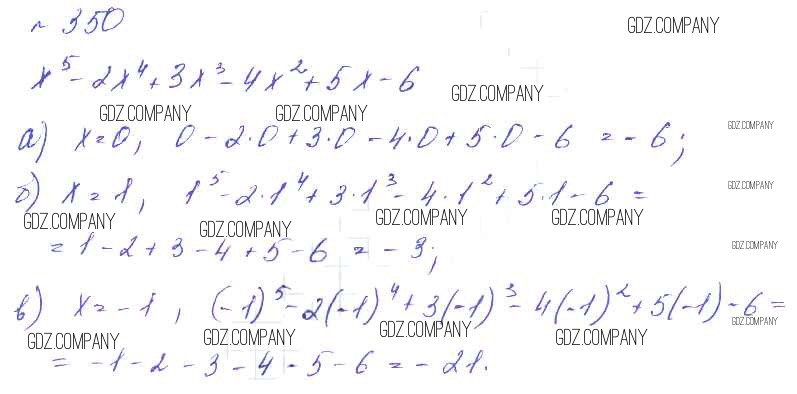 № 350 GDZ.COMPANY
x⁵ - 2x⁴ + 3x³ - 4x² + 5x - 6 GDZ.COMPANY
GDZ.COMPANY GDZ.COMPANY GDZ.COMPANY
а) x = 0, 0 - 2·0 + 3·0 - 4·0 + 5·0 - 6 = - 6;
б) x = 1, 1⁵ - 2·1⁴ + 3·1³ - 4·1² + 5·1 - 6 = GDZ.COMPANY
GDZ.COMPANY GDZ.COMPANY GDZ.COMPANY GDZ.COMPANY
= 1 - 2 + 3 - 4 + 5 - 6 = - 3; GDZ.COMPANY
в) x = - 1, (-1)⁵ - 2(-1)⁴ + 3(-1)³ - 4(-1)² + 5(-1) - 6 =
GDZ.COMPANY GDZ.COMPANY GDZ.COMPANY GDZ.COMPANY GDZ.COMPANY
= - 1 - 2 - 3 - 4 - 5 - 6 = - 21.